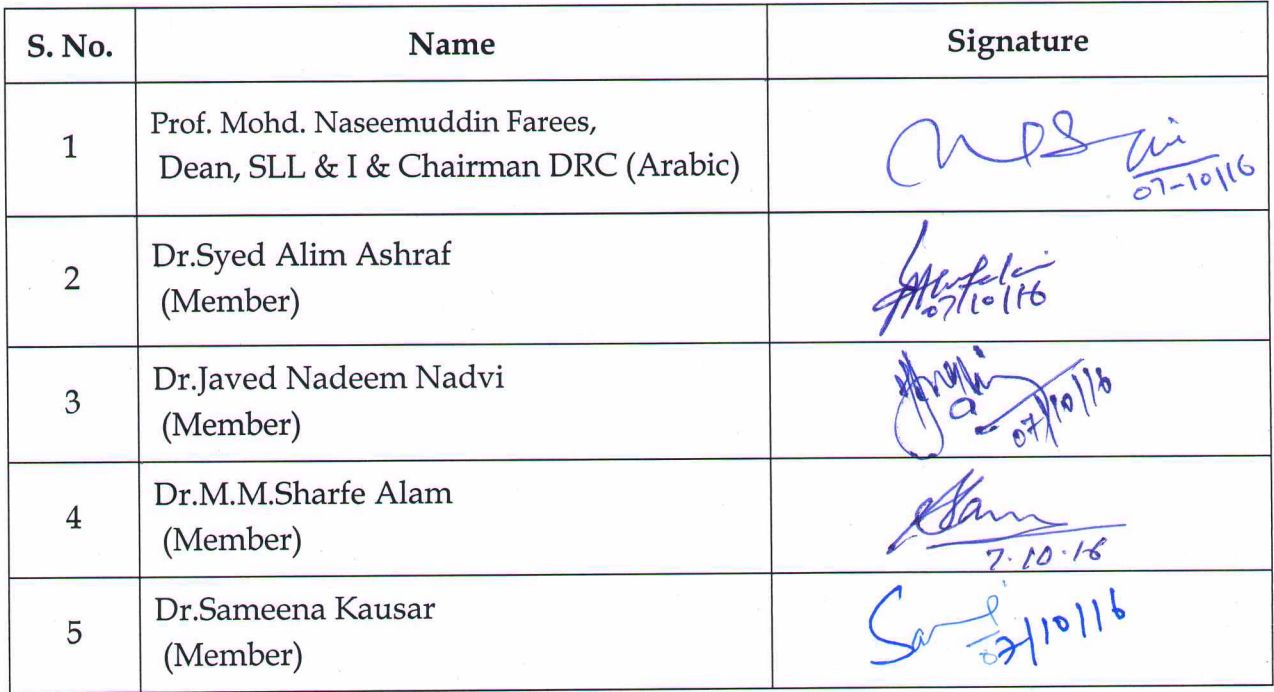 S. No. Name Signature
1 Prof. Mohd. Naseemuddin Farees,
Dean, SLL & I & Chairman DRC (Arabic)
07-10/16
2 Dr.Syed Alim Ashraf
(Member)
07/10/16
3 Dr.Javed Nadeem Nadvi
(Member)
07/10/16
4 Dr.M.M.Sharfe Alam
(Member)
7.10.16
5 Dr.Sameena Kausar
(Member)
07/10/16